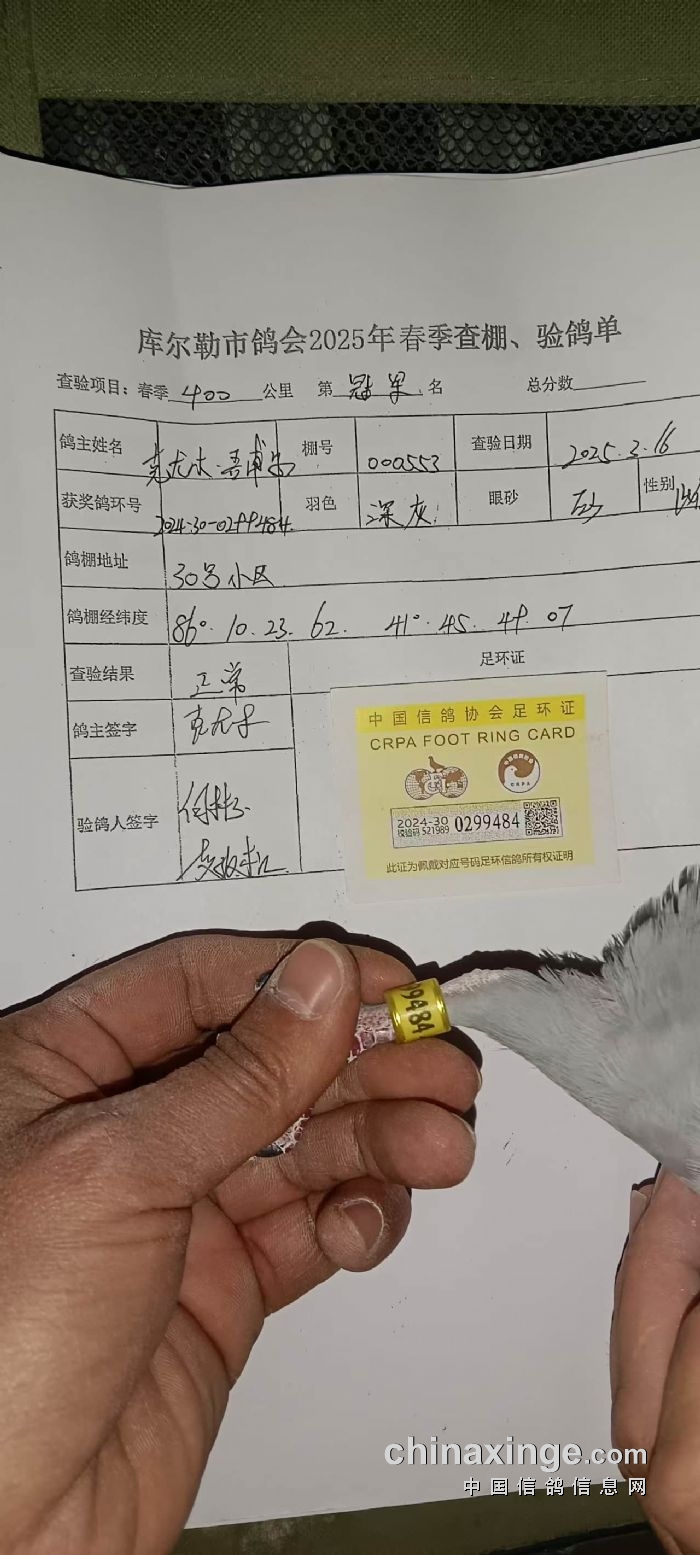 库尔勒市鸽会2025年春季查棚、验鸽单
查验项目：春季 400 公里 第 冠军 名 总分数
鸽主姓名 克尤木·吾甫尔 棚号 000553 查验日期 2025.3.16
获奖鸽环号 2024-30-0299484 羽色 深灰 眼砂 砂 性别 雄
鸽棚地址 30号小区
鸽棚经纬度 86°.10.23.62. 41°.45.49.07
查验结果 正常 足环证
鸽主签字 克尤木
验鸽人签字
中国信鸽协会足环证
CRPA FOOT RING CARD
CRPA
2024-30
校验码 S21989 0299484
此证为佩戴对应号码足环信鸽所有权证明
99484
chinaxinge.com
中国信鸽信息网